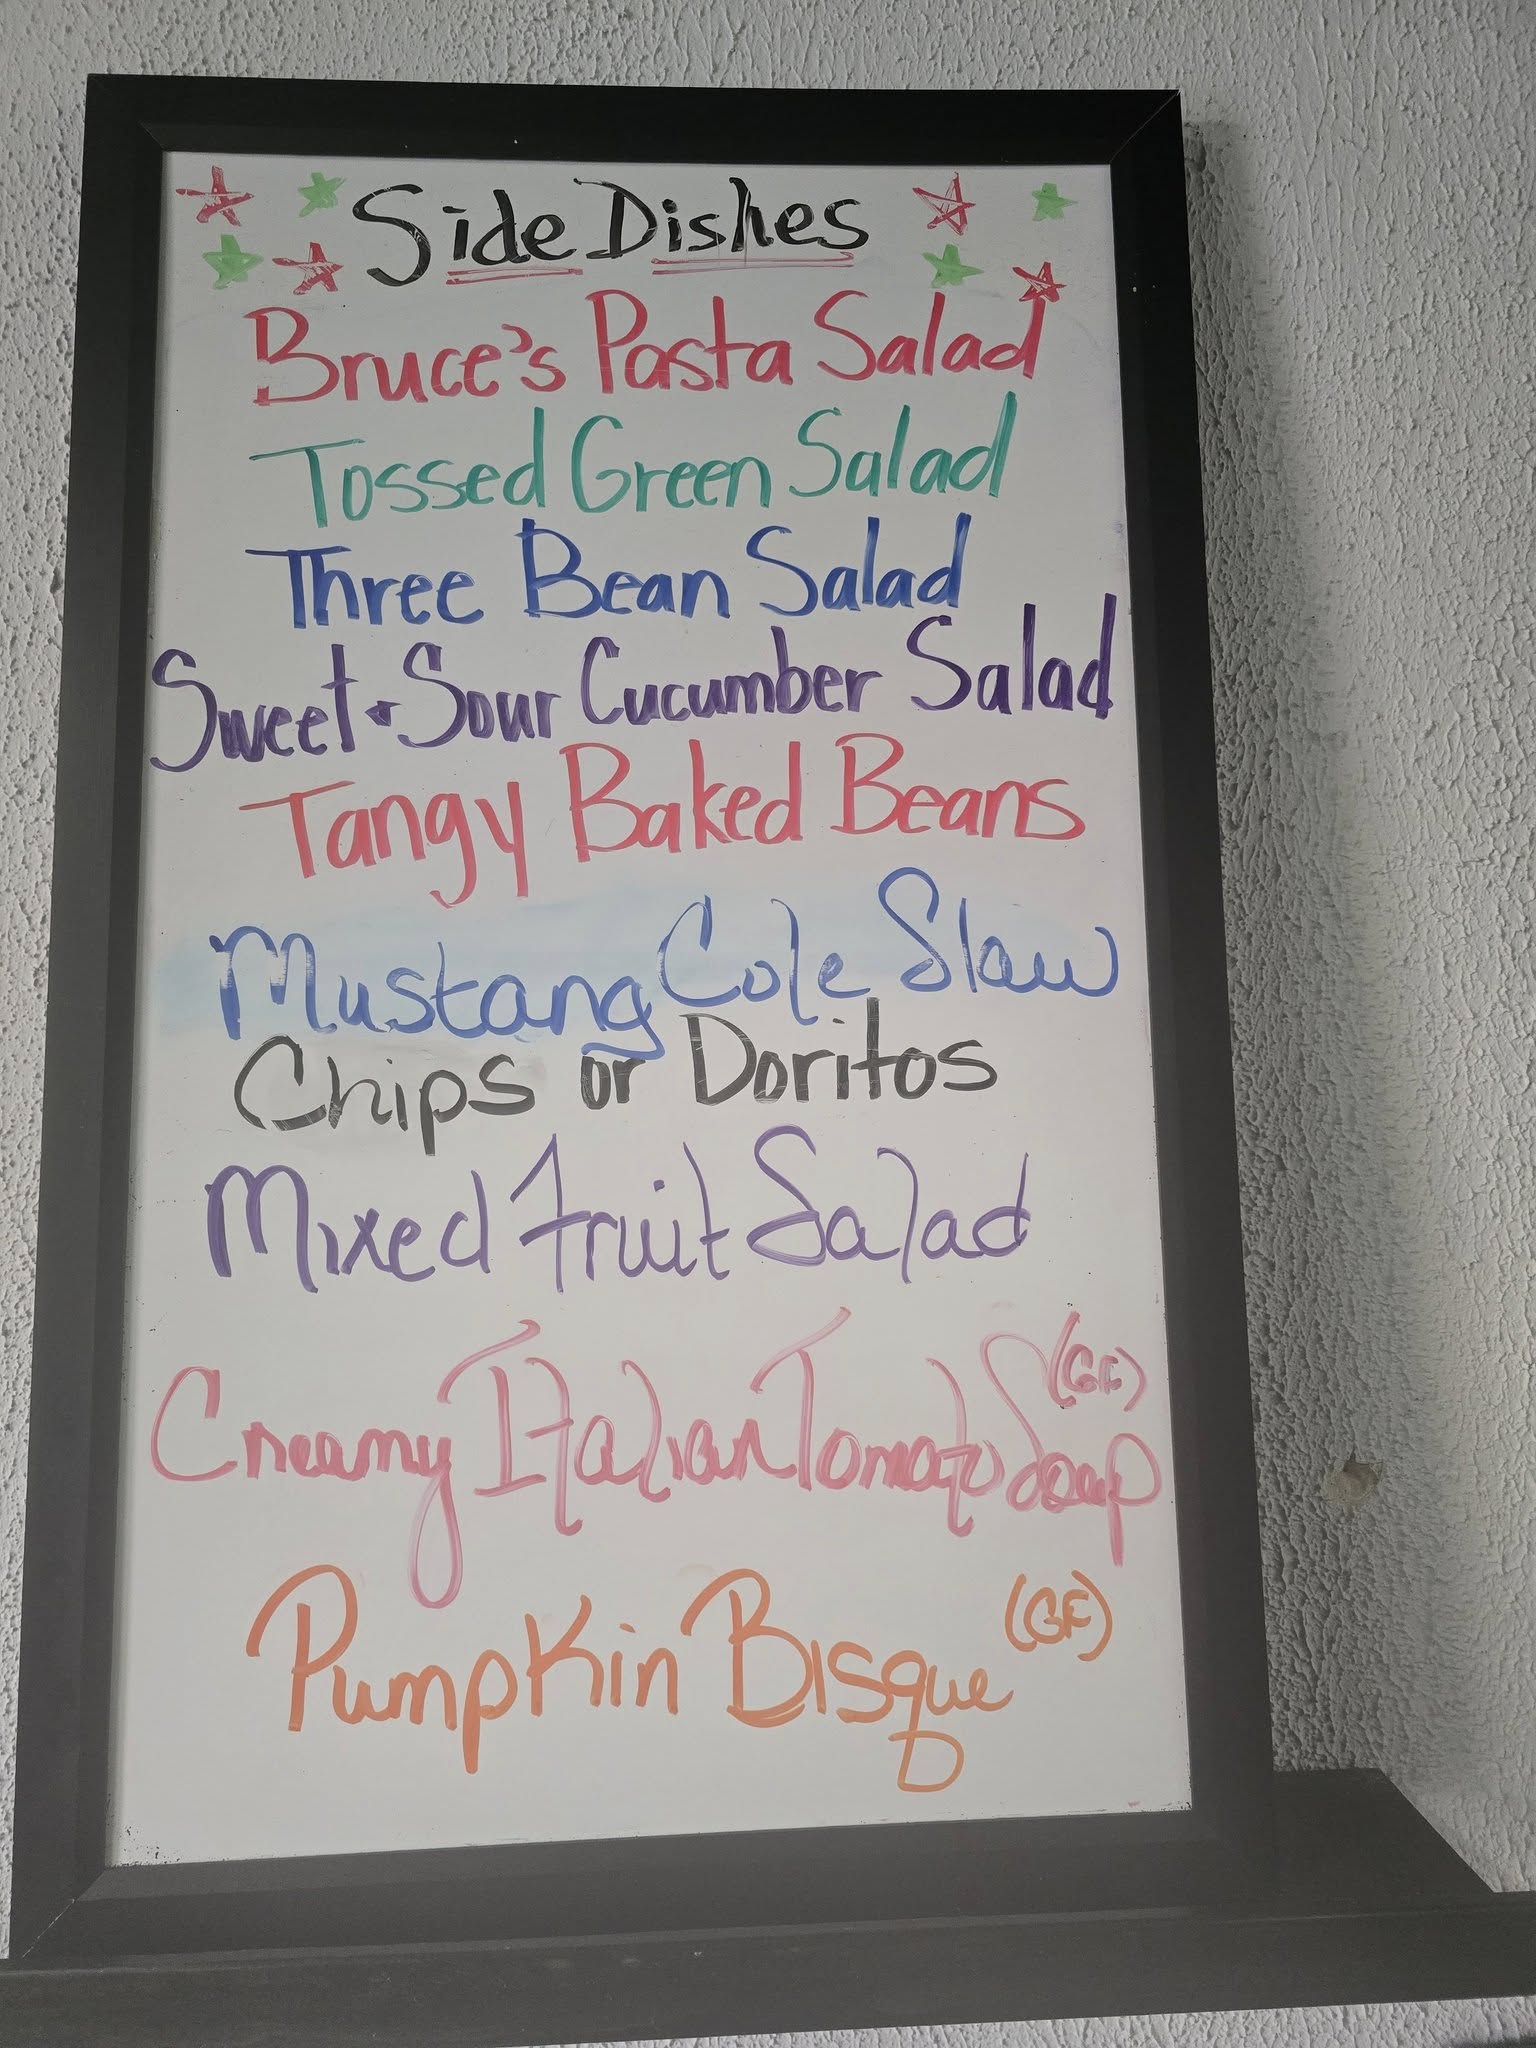 Side Dishes
Bruce's Pasta Salad
Tossed Green Salad
Three Bean Salad
Sweet + Sour Cucumber Salad
Tangy Baked Beans
Mustang Cole Slaw
Chips or Doritos
Mixed Fruit Salad
Creamy Italian Tomato Soup (GF)
Pumpkin Bisque (GF)